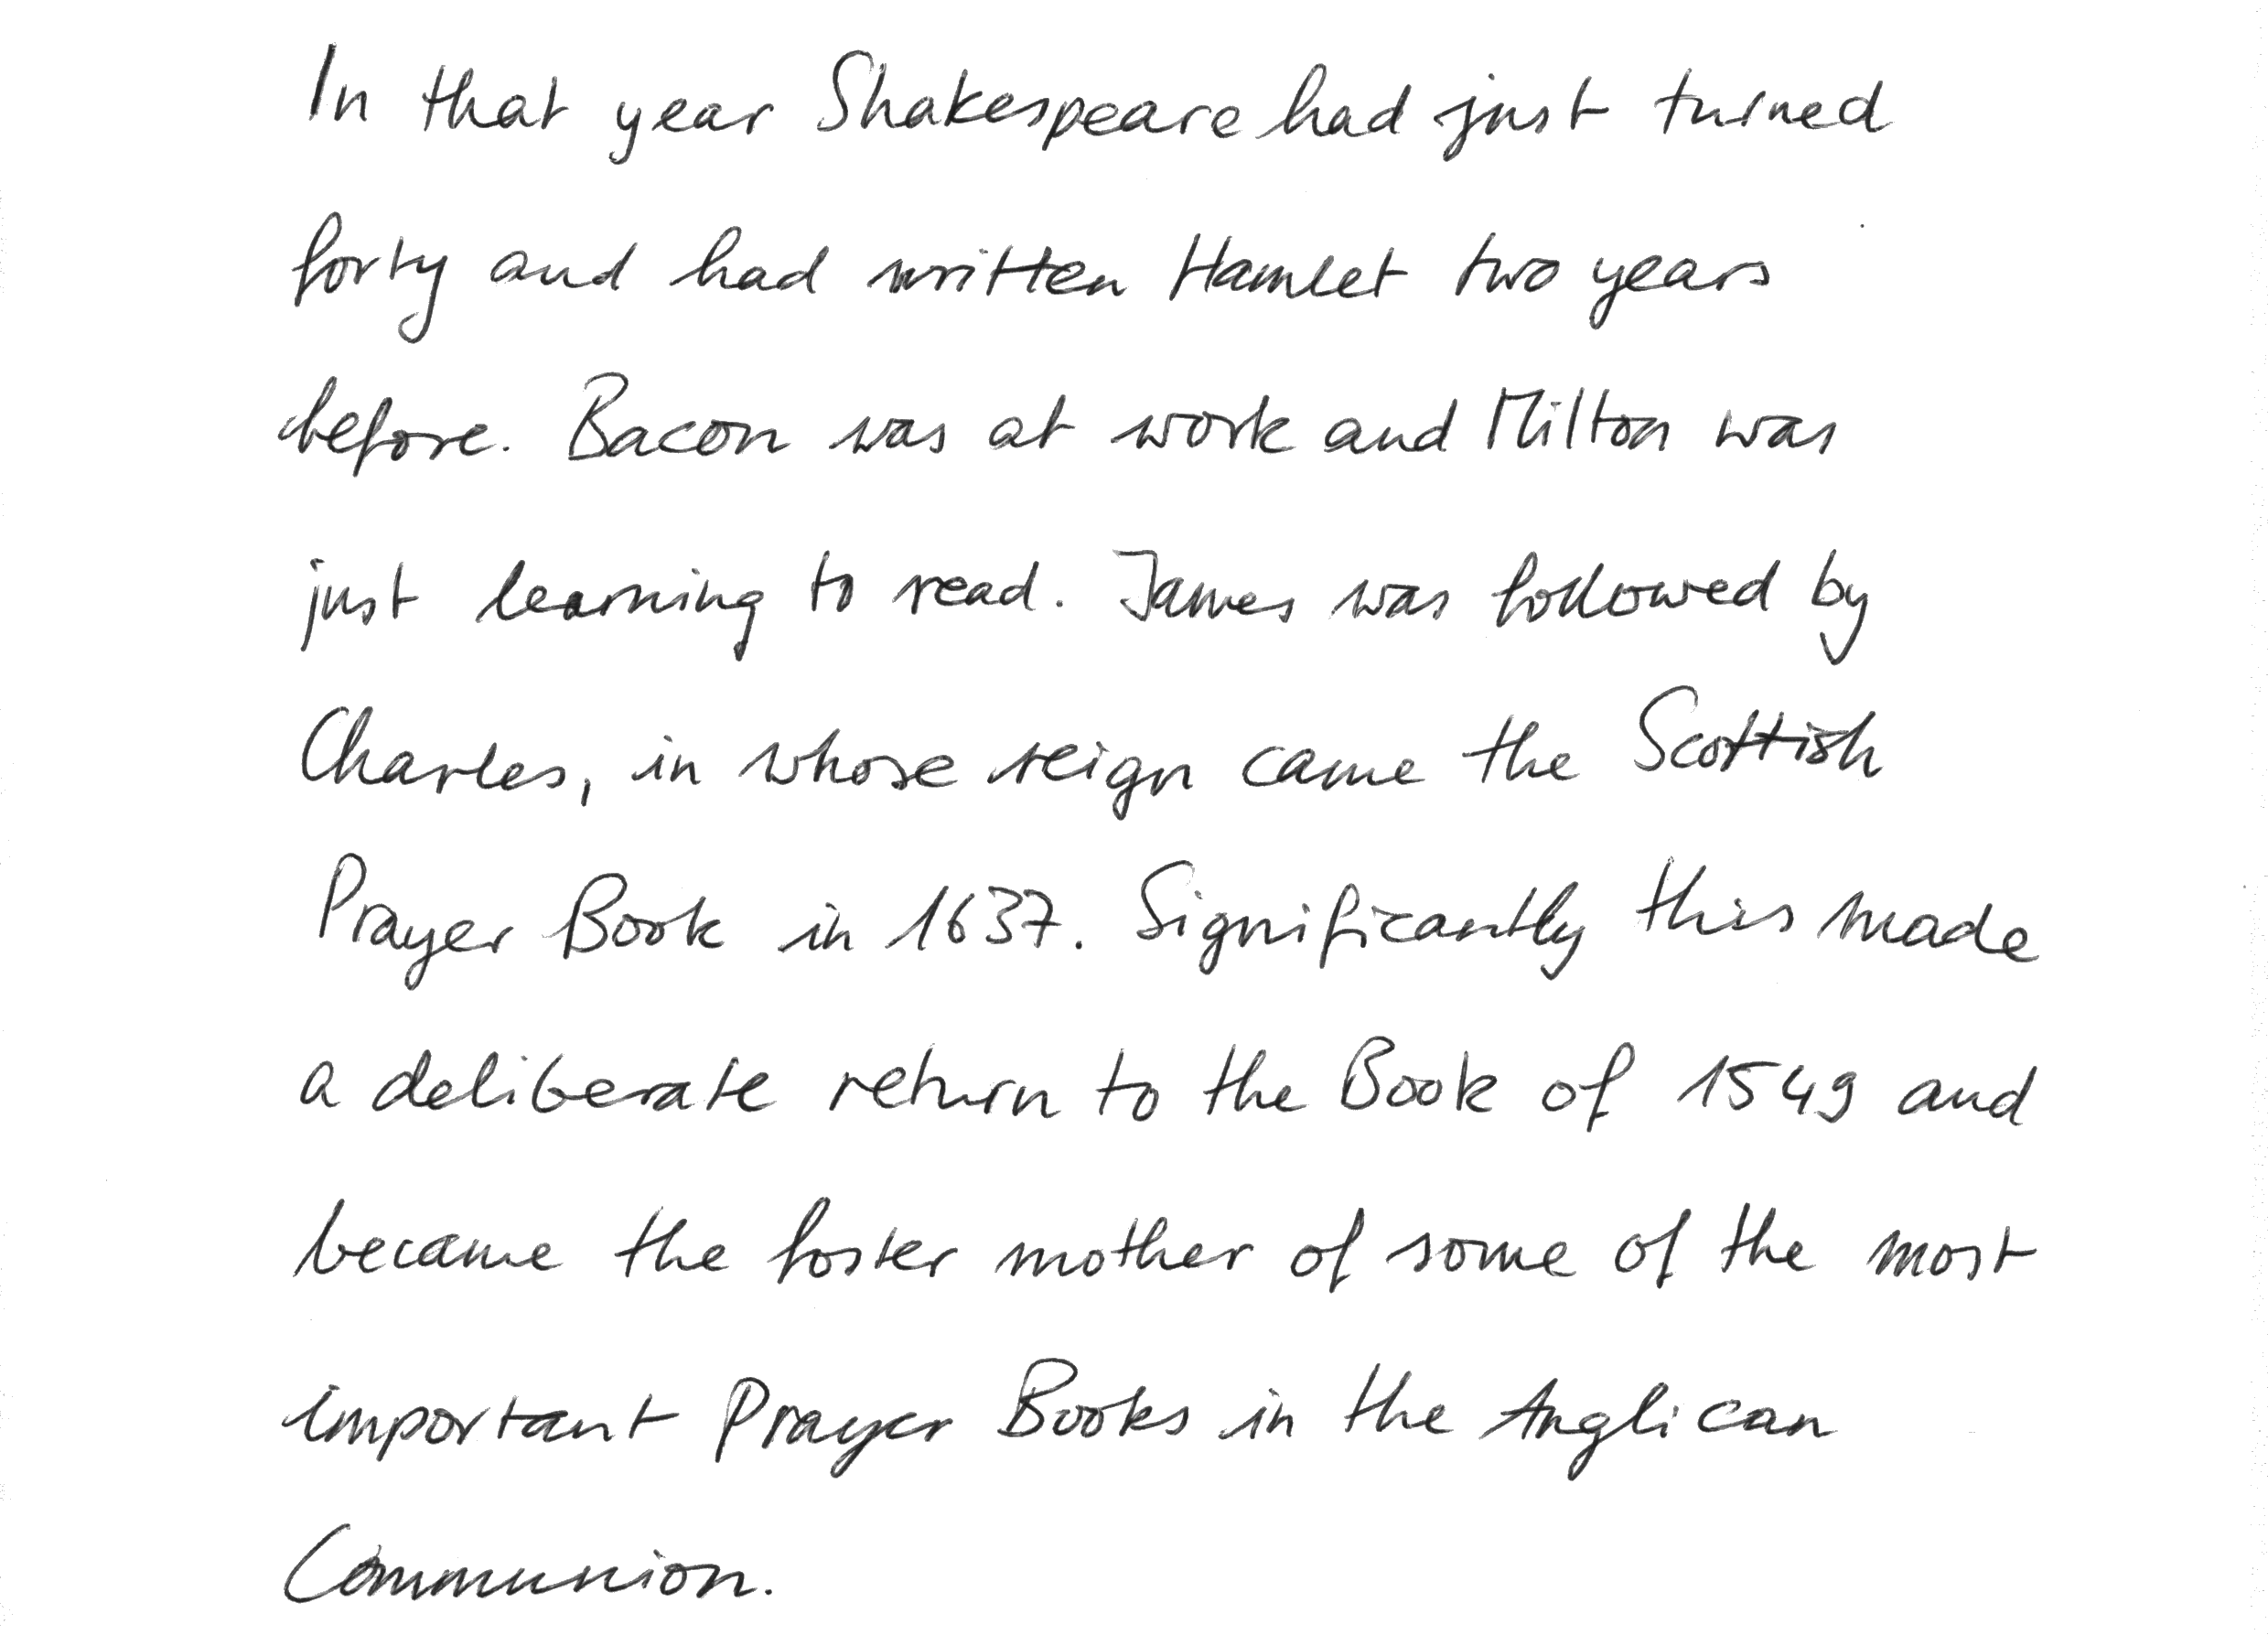 In that year Shakespeare had just turned
forty and had written Hamlet two years
before. Bacon was at work and Milton was
just learning to read. James was followed by
Charles, in whose reign came the Scottish
Prayer Book in 1637. Significantly this made
a deliberate return to the Book of 1549 and
became the foster mother of some of the most
important Prayer Books in the Anglican
Communion.